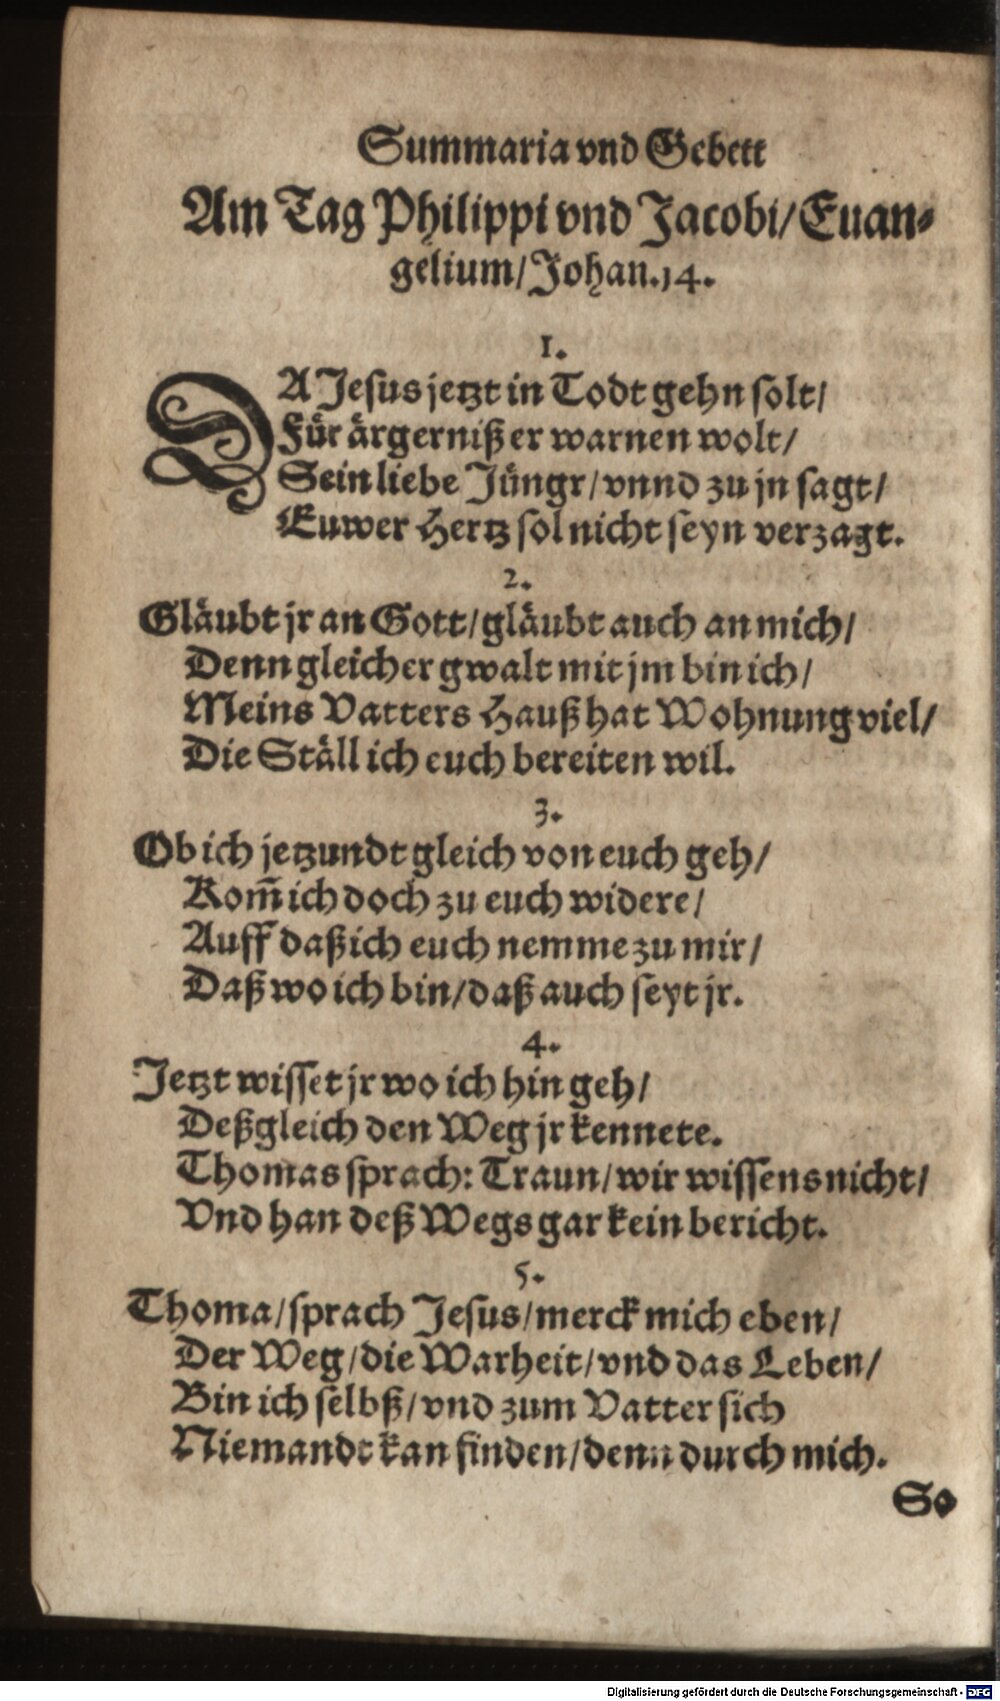 Summaria vnd Gebett
Am Tag Philippi vnd Jacobi/ Euan-
gelium/ Johan. 14.
1.
DA Jesus jetzt in Todt gehn solt/
Für ärgerniß er warnen wolt/
Sein liebe Jüngr/ vnnd zu jn sagt/
Euwer Hertz sol nicht seyn verzagt.
2.
Gläubt jr an Gott/ gläubt auch an mich/
Denn gleicher gwalt mit jm bin ich/
Meins Vatters Hauß hat Wohnung viel/
Die Ställ ich euch bereiten wil.
3.
Ob ich jetzundt gleich von euch geh/
Kom̃ ich doch zu euch widere/
Auff daß ich euch nemme zu mir/
Daß wo ich bin/ daß auch seyt jr.
4.
Jetzt wisset jr wo ich hin geh/
Deßgleich den Weg jr kennete.
Thomas sprach: Traun/ wir wissens nicht/
Vnd han deß Wegs gar kein bericht.
5.
Thoma/ sprach Jesus/ merck mich eben/
Der Weg/ die Warheit/ vnd das Leben/
Bin ich selbß/ vnd zum Vatter sich
Niemandt kan finden/ denn durch mich.
So
Digitalisierung gefördert durch die Deutsche Forschungsgemeinschaft - DFG